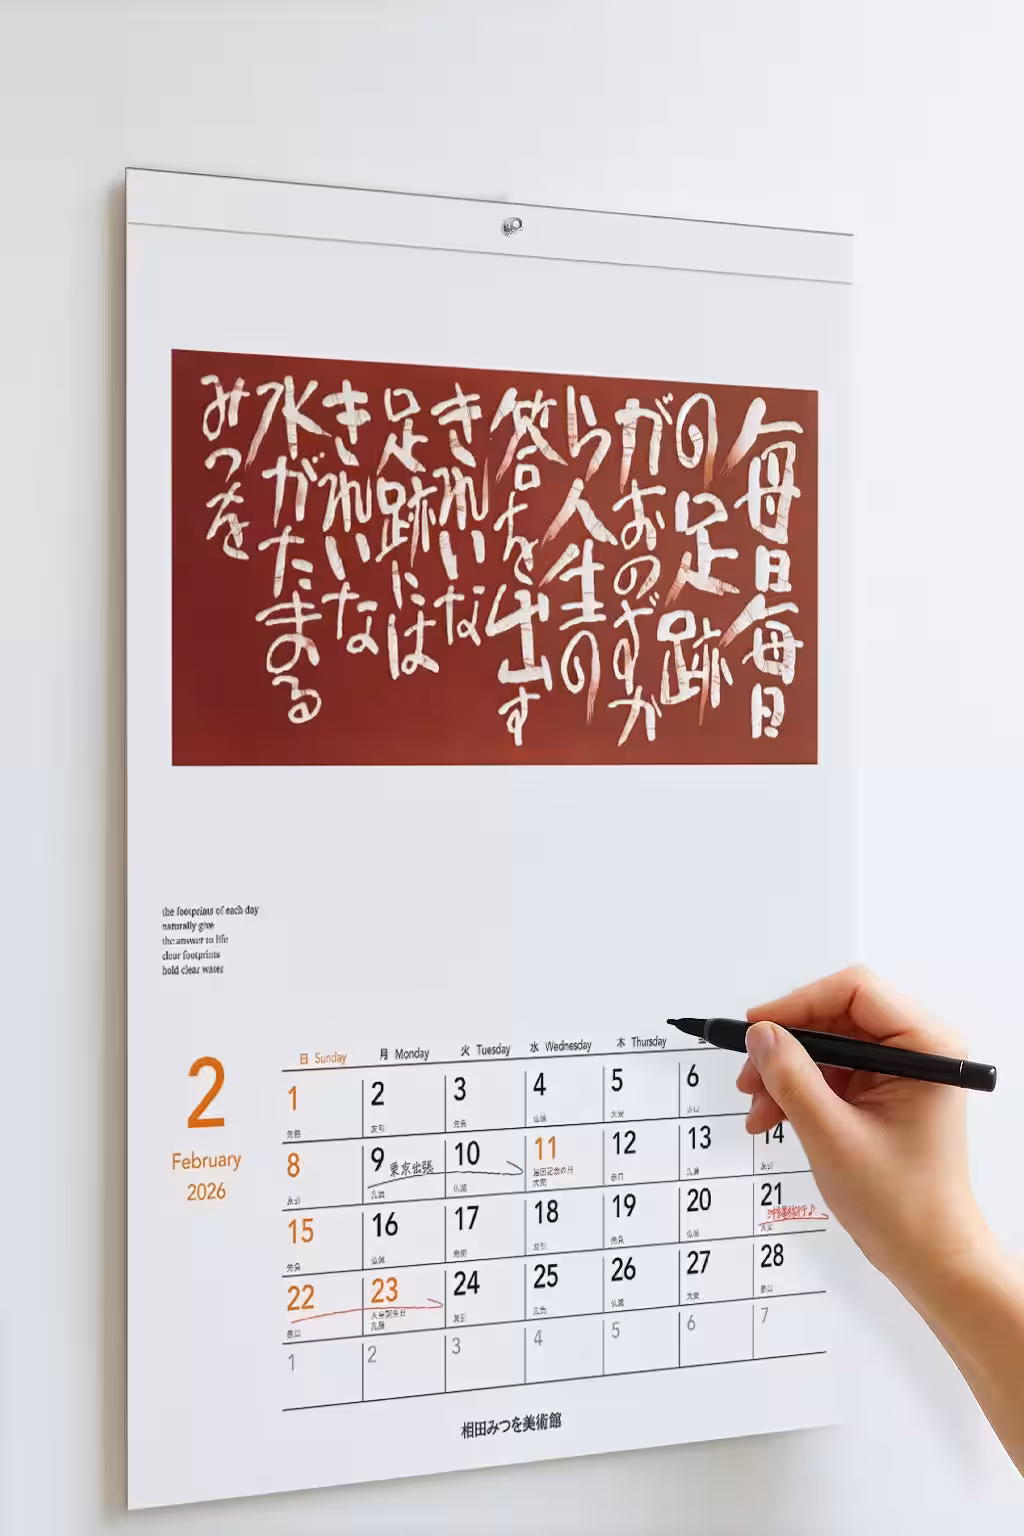 毎日毎日
の足跡
がおのずか
ら人生の
答を出す
きれいな
足跡には
きれいな
水がたまる
みつを
the footprints of each day
naturally give
the answer to life
clear footprints
hold clear water
2
February
2026
日 Sunday 月 Monday 火 Tuesday 水 Wednesday 木 Thursday
1 2 3 4 5 6
先勝 友引 先負 仏滅 大安 赤口
8 9 東京出張 10 11 12 13 14
友引 先負 仏滅 建国記念の日 大安 赤口 先勝 友引
15 16 17 18 19 20 21 沖縄旅行♪
先負 仏滅 先勝 友引 先負 仏滅 大安
22 23 24 25 26 27 28
赤口 天皇誕生日 先勝 友引 先負 仏滅 大安 赤口
1 2 3 4 5 6 7
相田みつを美術館